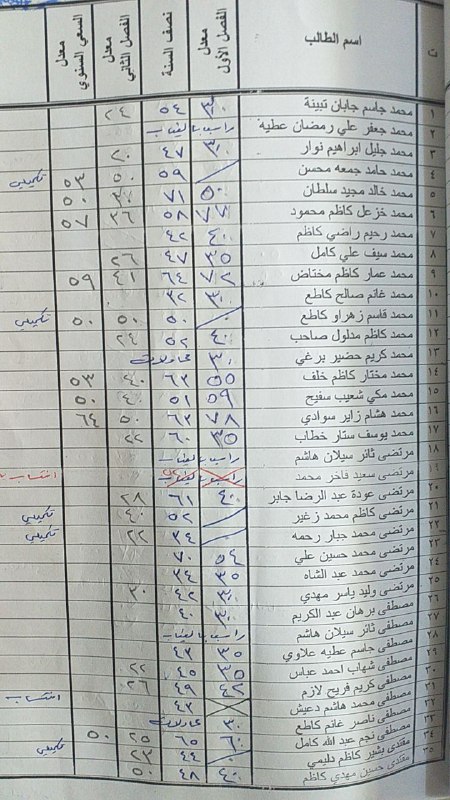 ت اسم الطالب معدل الفصل الأول نصف السنة معدل الفصل الثاني معدل السعي السنوي
١ محمد جاسم جابان تبينة ٣٠ ٥٤ ٢٤
٢ محمد جعفر علي رمضان عطيه راسب بالغياب
٣ محمد جليل ابراهيم نوار ٣٠ ٤٧ ٢٠
٤ محمد حامد جمعه محسن / ٥٩ ٥٠ ٥٣ تكميلي
٥ محمد خالد مجيد سلطان ٥٠ ٧١ ٣٠ ٥٠
٦ محمد خزعل كاظم محمود ٧٧ ٥٨ ٣٦ ٥٧
٧ محمد رحيم راضي كاظم ٤٠ ٤٢
٨ محمد سيف علي كامل ٣٥ ٤٧ ٢٦
٩ محمد عمار كاظم مختاض ٧٢ ٦٤ ٤١ ٥٩
١٠ محمد غانم صالح كاطع ٣٠ ٣٢
١١ محمد قاسم زهراو كاطع / ٥٠ ٥٠ ٥٠ تكميلي
١٢ محمد كاظم مدلول صاحب ٤٠ ٥٢ ٢٤
١٣ محمد كريم خضير برغي ٣٠
١٤ محمد مختار كاظم خلف ٥٥ ٦٣ ٤٠ ٥٣
١٥ محمد مكي شعيب سفيح ٥٩ ٥١ ٤٠ ٥٠
١٦ محمد هشام زاير سوادي ٧٨ ٦٣ ٥٠ ٦٤
١٧ محمد يوسف ستار خطاب ٣٥ ٦٠ ٢٢
١٨ مرتضى ثائر سيلان هاشم راسب بالغياب
١٩ مرتضى سعيد فاخر محمد راسب بالغياب انتساب
٢٠ مرتضى عودة عبد الرضا جابر ٤٠ ٦١ ٢٨
٢١ مرتضى كاظم محمد زغير / ٥٢ ٤٠ تكميلي
٢٢ مرتضى محمد جبار رحمه / ٣٤ ٢٢ تكميلي
٢٣ مرتضى محمد حسين علي ٥٤ ٧٠
٢٤ مرتضى محمد عبد الشاه ٣٥ ٣٤
٢٥ مرتضى وليد ياسر مهدي ٣٠ ٤٢ ٣٠
٢٦ مصطفى برهان عبد الكريم ٣٠ ٤٠
٢٧ مصطفى ثائر سيلان هاشم راسب بالغياب
٢٨ مصطفى جاسم عطيه علاوي ٣٥ ٤٣
٢٩ مصطفى شهاب احمد عباس ٣٥ ٤٥ ٢٢
٣٠ مصطفى كريم فريح لازم ٤٢ ٤٩ ٢٦
٣١ مصطفى محمد هاشم دعيش ٤٣ انتساب
٣٢ مصطفى ناصر غانم كاطع ٣٠
٣٣ مصطفى نجم عبد الله كامل ٦٠ ٦٥ ٢٥ ٥٠
٣٤ مقتدى بشير كاظم دليمي / ٤٤ ٢٣ تكميلي
٣٥ مقتدى حسين مهدي كاظم ٤٠ ٤٨ ٥٠